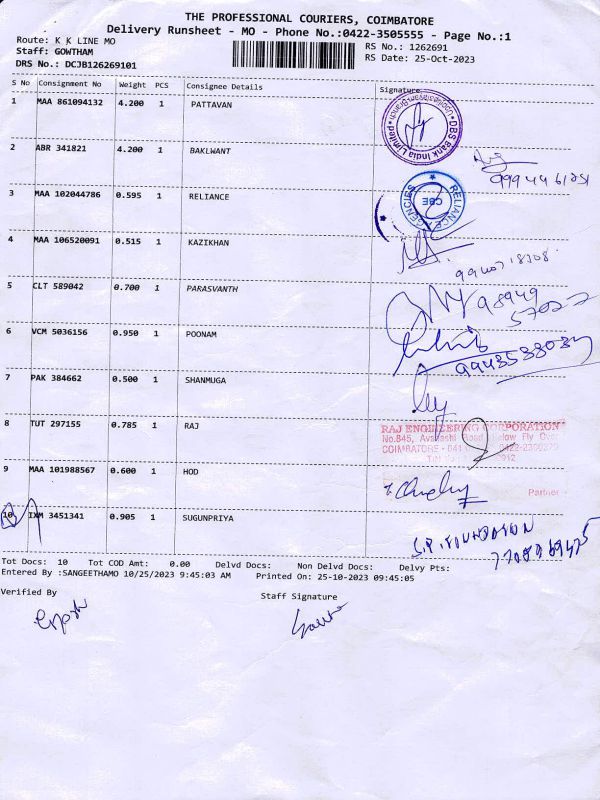 THE PROFESSIONAL COURIERS, COIMBATORE
Delivery Runsheet - MO - Phone No.:0422-3505555 - Page No.:1
Route: K K LINE MO
RS No.: 1262691
Staff: GOWTHAM
RS Date: 25-Oct-2023
DRS No.: DCJB126269101
S No Consignment No Weight PCS Consignee Details Signature
1 MAA 861094132 4.200 1 PATTAVAN
DBS Bank India Limited
2 ABR 341821 4.200 1 BAKLWANT
3 MAA 102044786 0.595 1 RELIANCE
RELIANCE AGENCIES
CBE
4 MAA 106520091 0.515 1 KAZIKHAN
5 CLT 589042 0.700 1 PARASVANTH
98949
57022
6 VCM 5036156 0.950 1 POONAM
7 PAK 384662 0.500 1 SHANMUGA
8 TUT 297155 0.785 1 RAJ
RAJ ENGINEERING CORPORATION
No.845, Road Below Fly Over
COIMBATORE - 641
9 MAA 101988567 0.600 1 HOD
Partner
10 IXM 3451341 0.905 1 SUGUNPRIYA
S.P. FOUNDATION
Tot Docs: 10 Tot COD Amt: 0.00 Delvd Docs: Non Delvd Docs: Delvy Pts:
Entered By :SANGEETHAMO 10/25/2023 9:45:03 AM Printed On: 25-10-2023 09:45:05
Verified By
Staff Signature